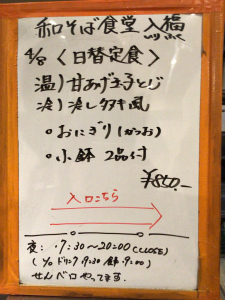 和そば食堂 入福
いり ふく
4/8 〈日替定食〉
温)甘あげ玉子とじ
冷)冷しタヌキ風
・おにぎり(かつお)
・小鉢 2品付
¥850.-
入口こちら
夜:17:30〜20:00(CLOSE)
せんベロやってます.